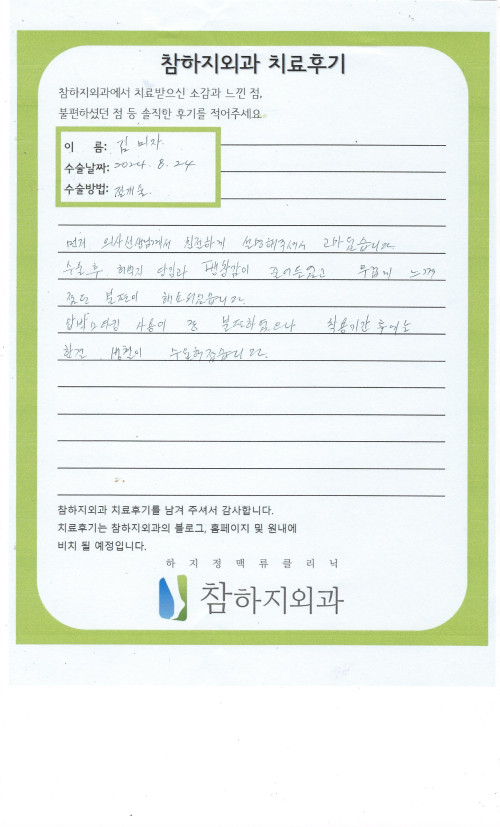 참하지외과 치료후기
참하지외과에서 치료받으신 소감과 느낀 점,
불편하셨던 점 등 솔직한 후기를 적어주세요.
이 름: 김 미자
수술날짜: 2024. 8. 24
수술방법: 절개술.
먼저 의사선생님께서 친절하게 설명해주셔서 고마웠습니다
수술 후 허벅지 안쪽과 팽창감이 줄어들었고 무겁게 느껴
졌던 불편이 해소되었습니다.
압박스타킹 사용이 좀 불편하였으나 착용기간 후에는
한결 생활이 수월해졌습니다.
참하지외과 치료후기를 남겨 주셔서 감사합니다.
치료후기는 참하지외과의 블로그, 홈페이지 및 원내에
비치 될 예정입니다.
하지정맥류클리닉
참하지외과